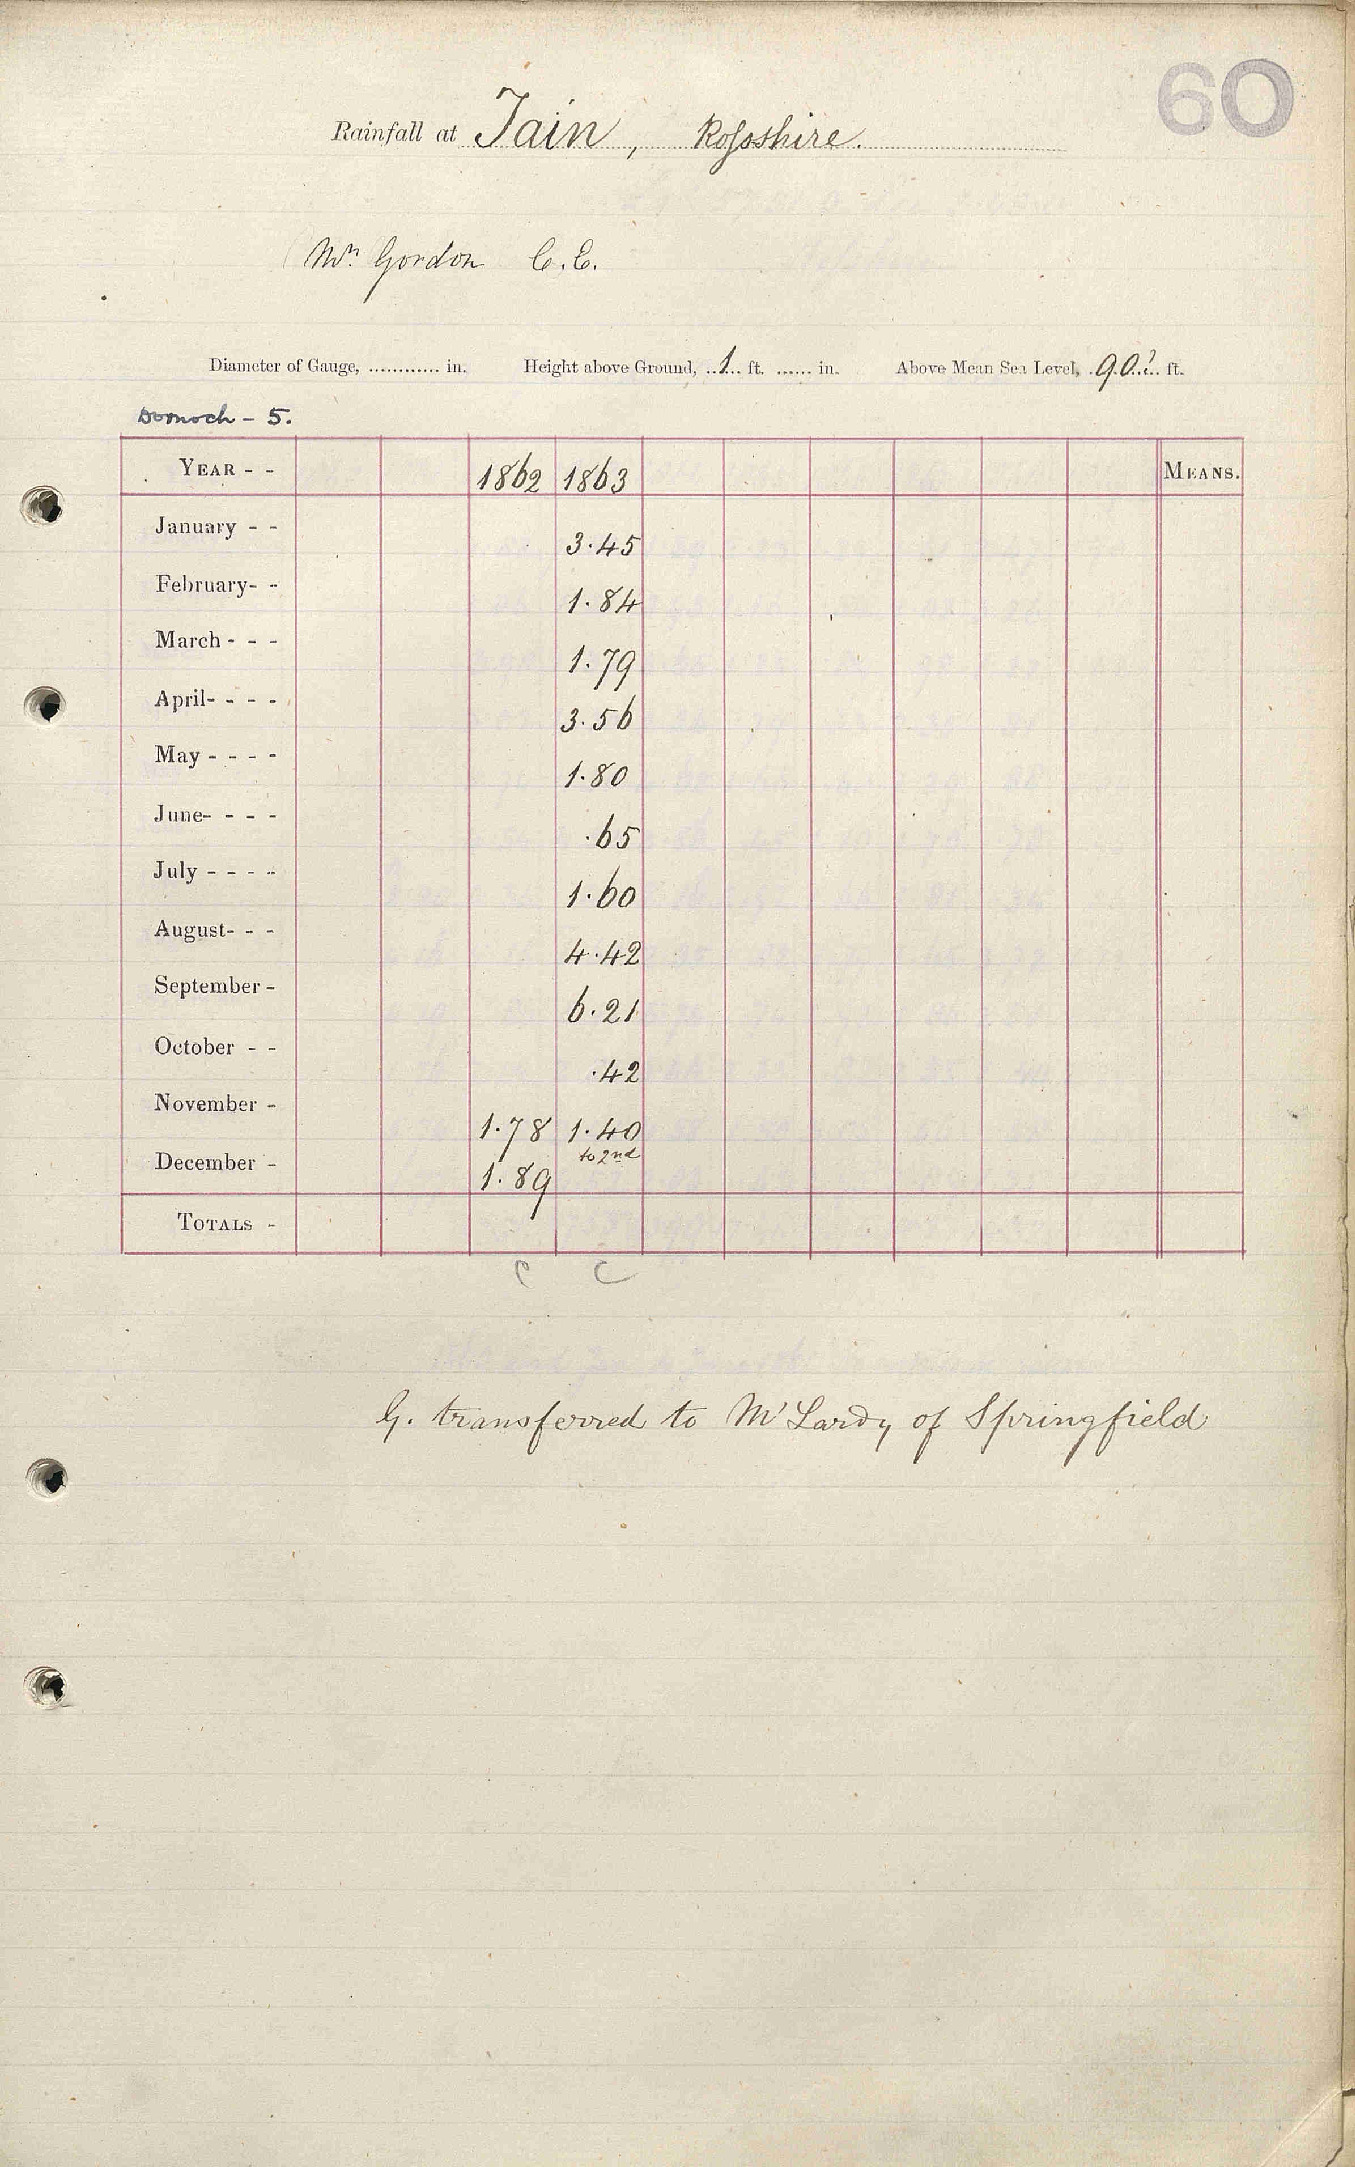 60
Rainfall at Tain, Rossshire.
Mr. Gordon C.E.
Diameter of Gauge, ............ in. Height above Ground, ..1... ft. ...... in. Above Mean Sea Level, .90?.. ft.
Dornoch - 5.
YEAR - - 1862 1863 MEANS.
January - - 3.45
February- - 1.84
March - - - 1.79
April- - - - 3.56
May - - - - 1.80
June- - - - .65
July - - - - 1.60
August- - - 4.42
September - 6.21
October - - .42
November - 1.78 1.40
to 2nd
December - 1.89
TOTALS -
C C
G. transferred to McLardy of Springfield